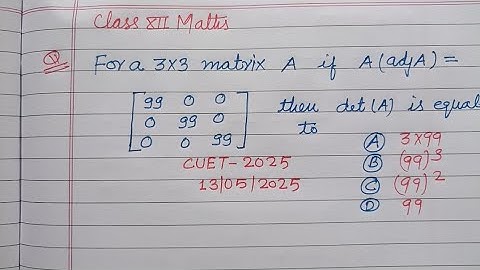 Class XII Maths
Q For a 3x3 matrix A if A(adjA) =
[99 0 0
0 99 0
0 0 99] then det(A) is equal to
CUET-2025
13/05/2025
A 3x99
B (99)^3
C (99)^2
D 99